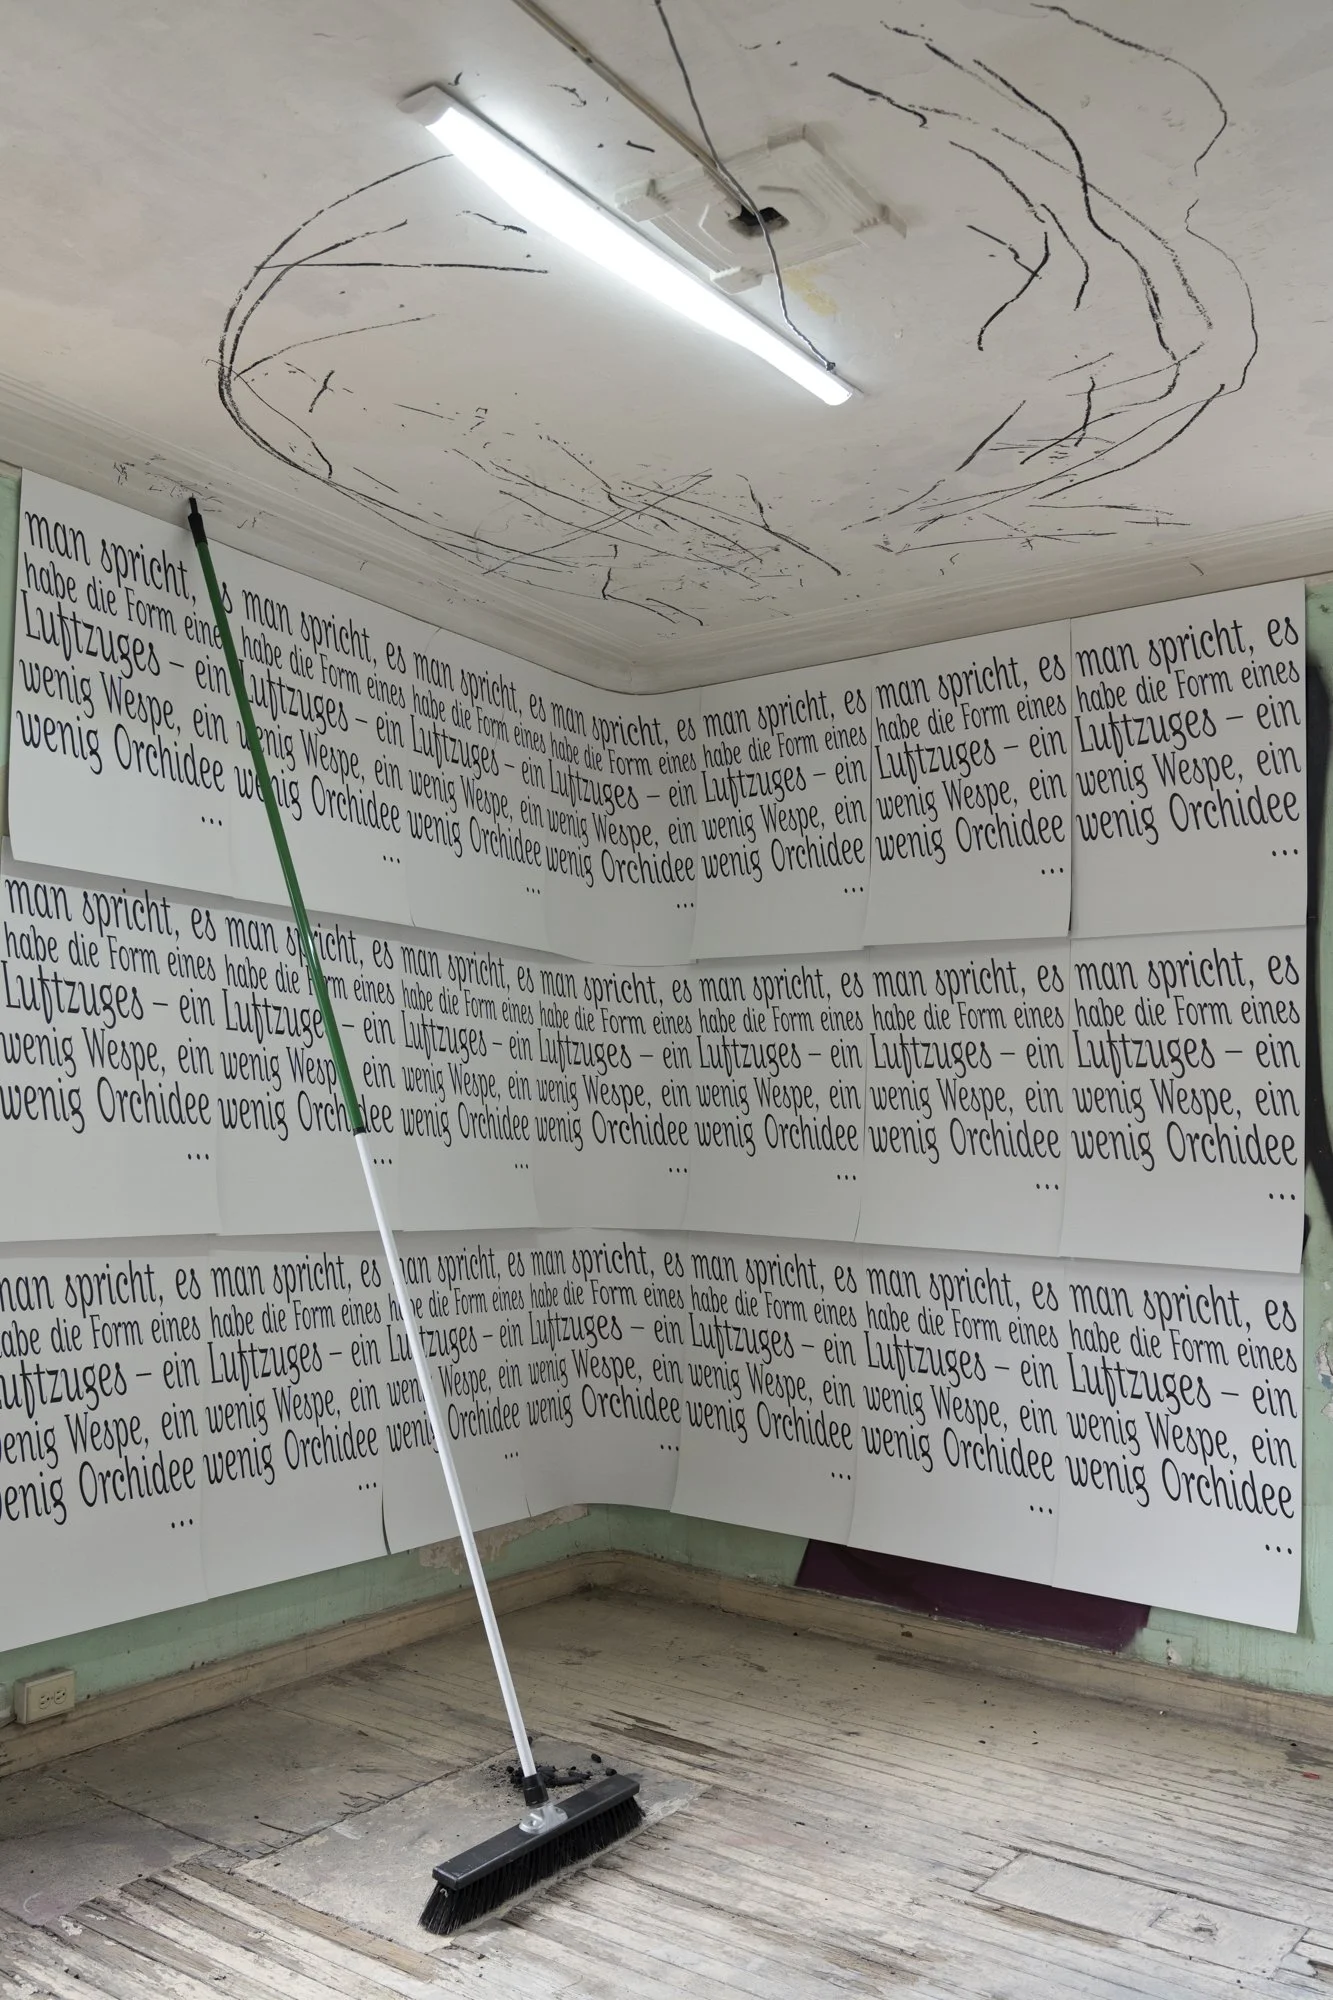 man spricht, es
habe die Form eines
Luftzuges – ein
wenig Wespe, ein
wenig Orchidee
...
man spricht, es
habe die Form eines
Luftzuges – ein
wenig Wespe, ein
wenig Orchidee
...
man spricht, es
habe die Form eines
Luftzuges – ein
wenig Wespe, ein
wenig Orchidee
...
man spricht, es
habe die Form eines
Luftzuges – ein
wenig Wespe, ein
wenig Orchidee
...
man spricht, es
habe die Form eines
Luftzuges – ein
wenig Wespe, ein
wenig Orchidee
...
man spricht, es
habe die Form eines
Luftzuges – ein
wenig Wespe, ein
wenig Orchidee
...
man spricht, es
habe die Form eines
Luftzuges – ein
wenig Wespe, ein
wenig Orchidee
...
man spricht, es
habe die Form eines
Luftzuges – ein
wenig Wespe, ein
wenig Orchidee
...
man spricht, es
habe die Form eines
Luftzuges – ein
wenig Wespe, ein
wenig Orchidee
...
man spricht, es
habe die Form eines
Luftzuges – ein
wenig Wespe, ein
wenig Orchidee
...
man spricht, es
habe die Form eines
Luftzuges – ein
wenig Wespe, ein
wenig Orchidee
...
man spricht, es
habe die Form eines
Luftzuges – ein
wenig Wespe, ein
wenig Orchidee
...
man spricht, es
habe die Form eines
Luftzuges – ein
wenig Wespe, ein
wenig Orchidee
...
man spricht, es
habe die Form eines
Luftzuges – ein
wenig Wespe, ein
wenig Orchidee
...
man spricht, es
habe die Form eines
Luftzuges – ein
wenig Wespe, ein
wenig Orchidee
...
man spricht, es
habe die Form eines
Luftzuges – ein
wenig Wespe, ein
wenig Orchidee
...
man spricht, es
habe die Form eines
Luftzuges – ein
wenig Wespe, ein
wenig Orchidee
...
man spricht, es
habe die Form eines
Luftzuges – ein
wenig Wespe, ein
wenig Orchidee
...
man spricht, es
habe die Form eines
Luftzuges – ein
wenig Wespe, ein
wenig Orchidee
...
man spricht, es
habe die Form eines
Luftzuges – ein
wenig Wespe, ein
wenig Orchidee
...
man spricht, es
habe die Form eines
Luftzuges – ein
wenig Wespe, ein
wenig Orchidee
...